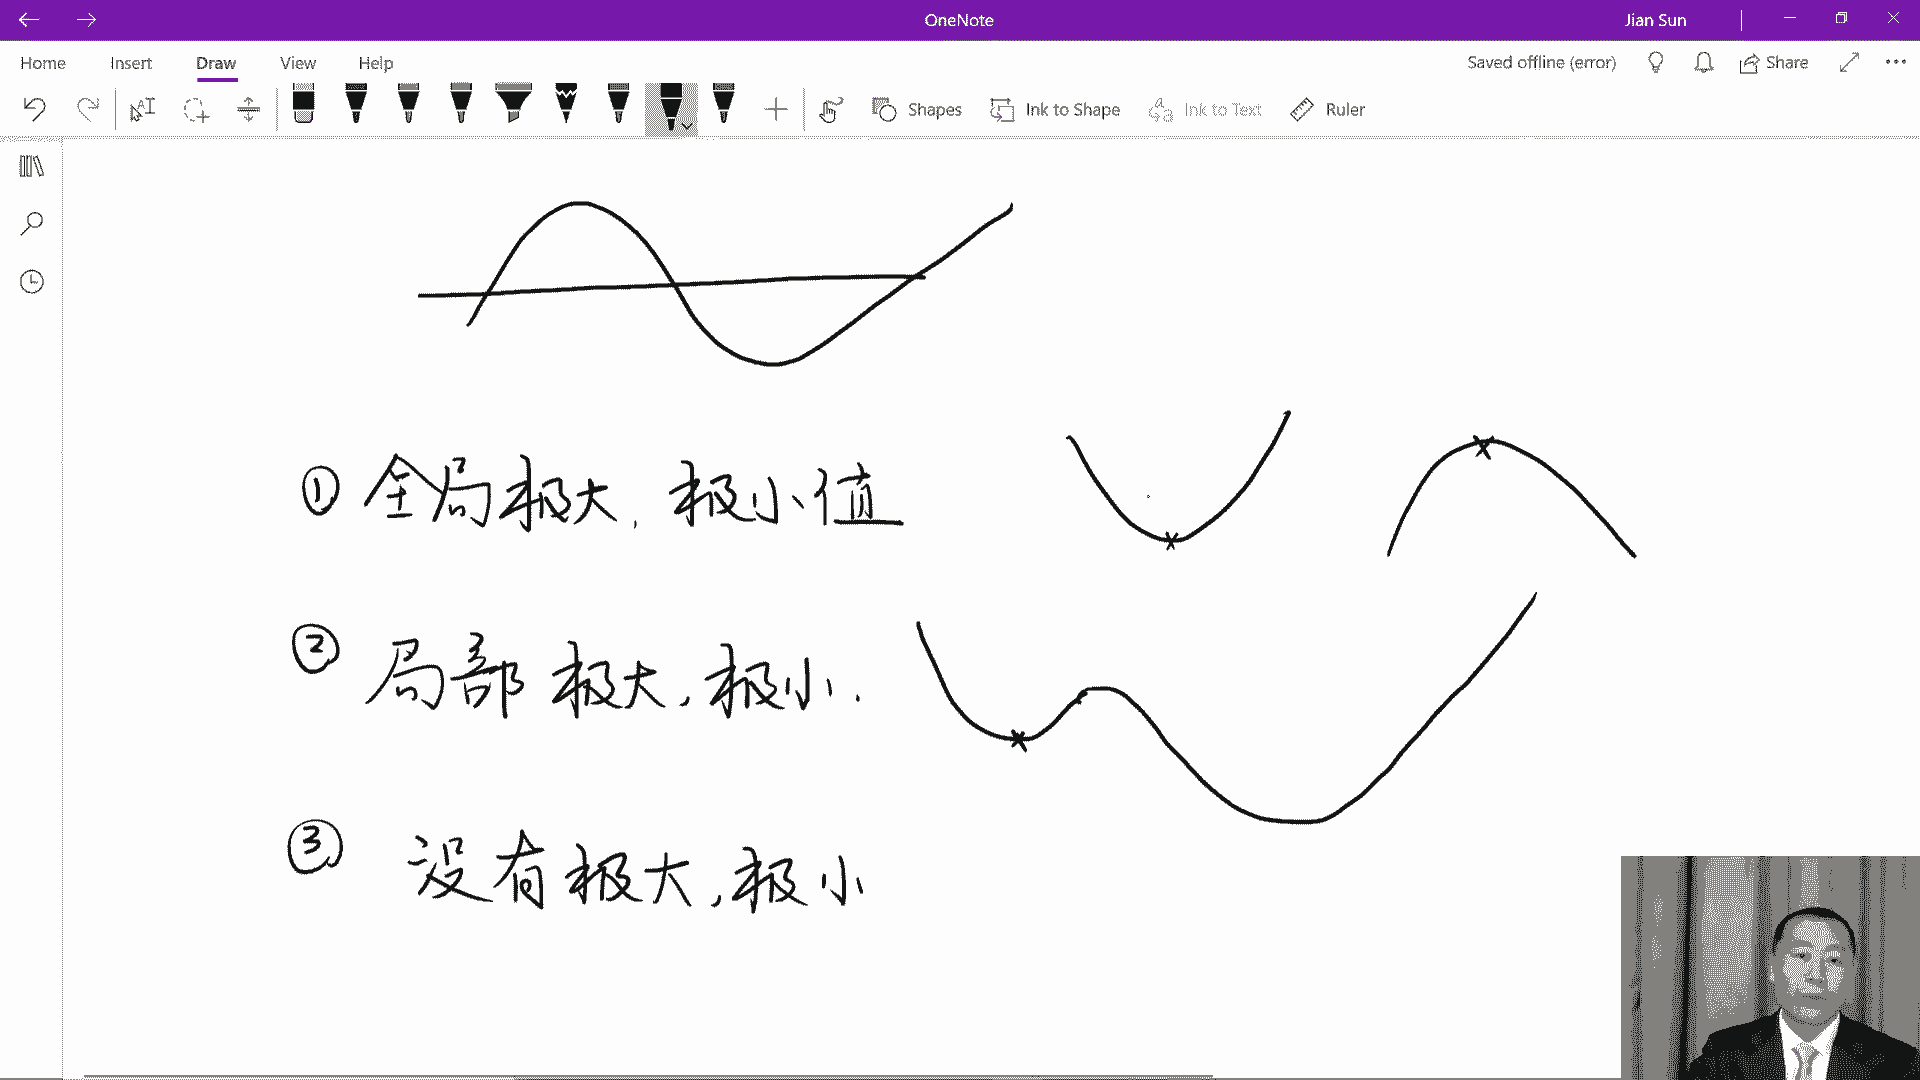 OneNote
Jian Sun
Home Insert Draw View Help
Saved offline (error) Share
Shapes Ink to Shape Ink to Text Ruler
① 全局极大, 极小值
② 局部极大, 极小.
③ 没有极大, 极小